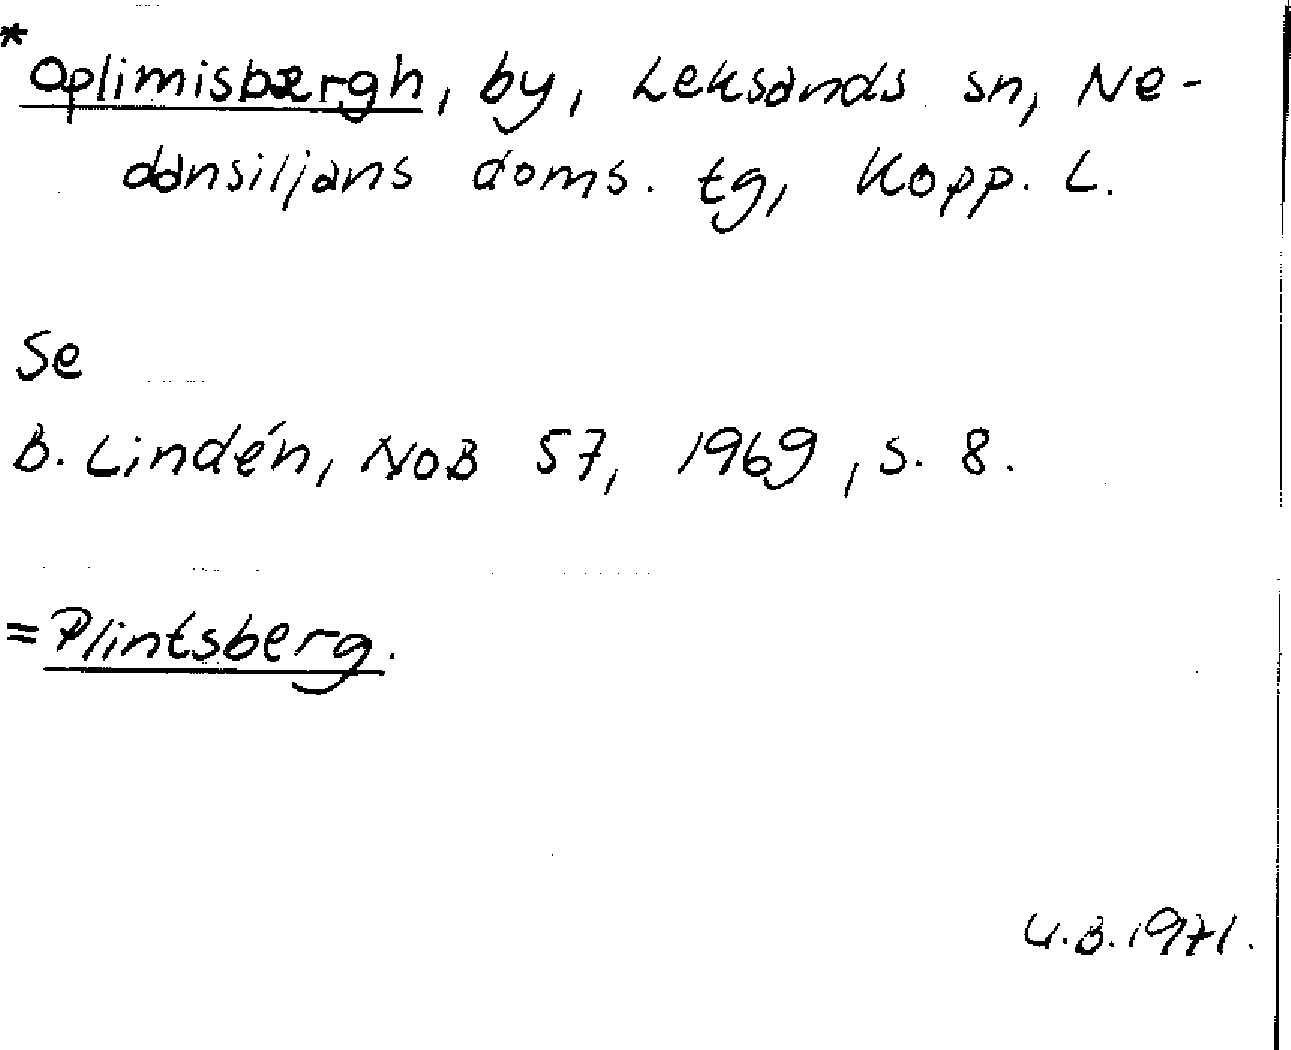 *Oplimisbærgh, by, Leksands sn, Ne-
dansiljans doms. tg, Kopp. L.
Se
B. Lindén, NoB 57, 1969, s. 8.
=Plintsberg.
U.B.1971.